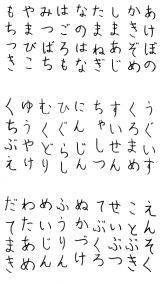 あけぼの
かきぞめ
しまあじ
たまねぎ
なのはな
はごろも
みつばち
やまびこ
もちつき
うぐいす
くろまめ
すいせん
ちゃしつ
にんじん
ひぐらし
むくどり
ゆうやけ
くちぶえ
えんそく
ことぶき
せいぶつ
てぶくろ
ぬかづけ
ふうりん
めいじん
わたあめ
だてまき